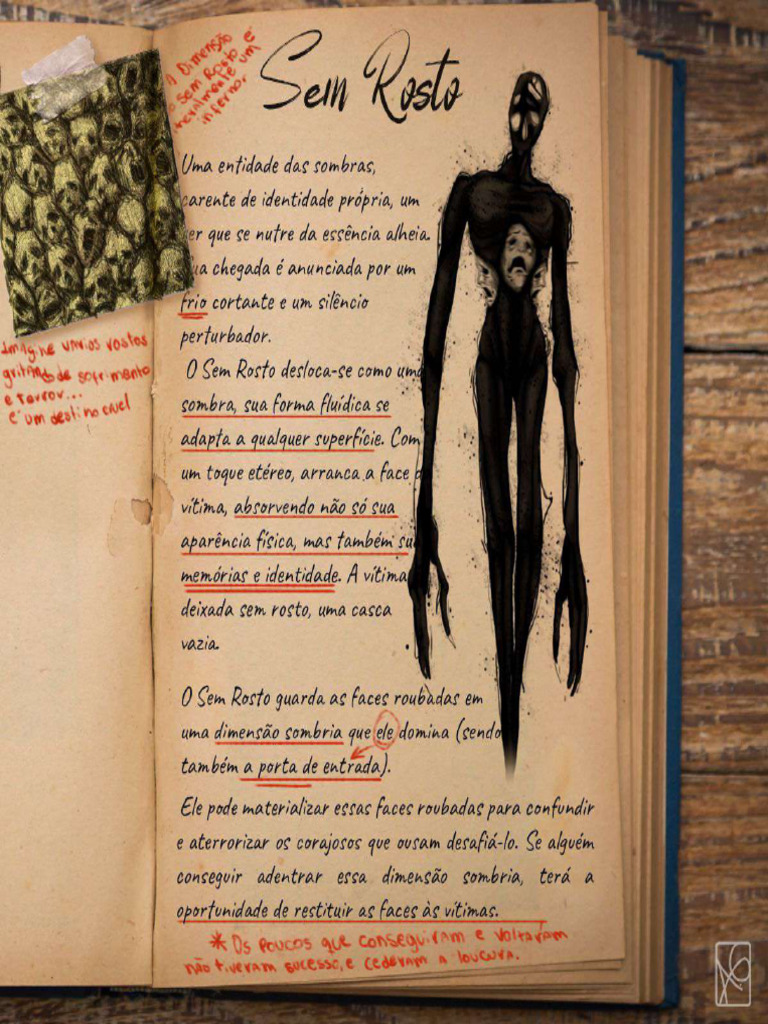 Sem Rosto
A Dimensão
Sem Rosto é
literalmente um
inferno.
Uma entidade das sombras,
carente de identidade própria, um
ser que se nutre da essência alheia.
Sua chegada é anunciada por um
frio cortante e um silêncio
perturbador.
O Sem Rosto desloca-se como uma
sombra, sua forma fluídica se
adapta a qualquer superfície. Com
um toque etéreo, arranca a face
vítima, absorvendo não só sua
aparência física, mas também
memórias e identidade. A vítima
deixada sem rosto, uma casca
vazia.
Imagine vários rostos
gritando de sofrimento
e terror...
é um destino cruel
O Sem Rosto guarda as faces roubadas em
uma dimensão sombria que ele domina (sendo
também a porta de entrada).
Ele pode materializar essas faces roubadas para confundir
e aterrorizar os corajosos que ousam desafiá-lo. Se alguém
conseguir adentrar essa dimensão sombria, terá a
oportunidade de restituir as faces às vítimas.
* Os poucos que conseguiram e voltaram
não tiveram sucesso, e cederam a loucura.